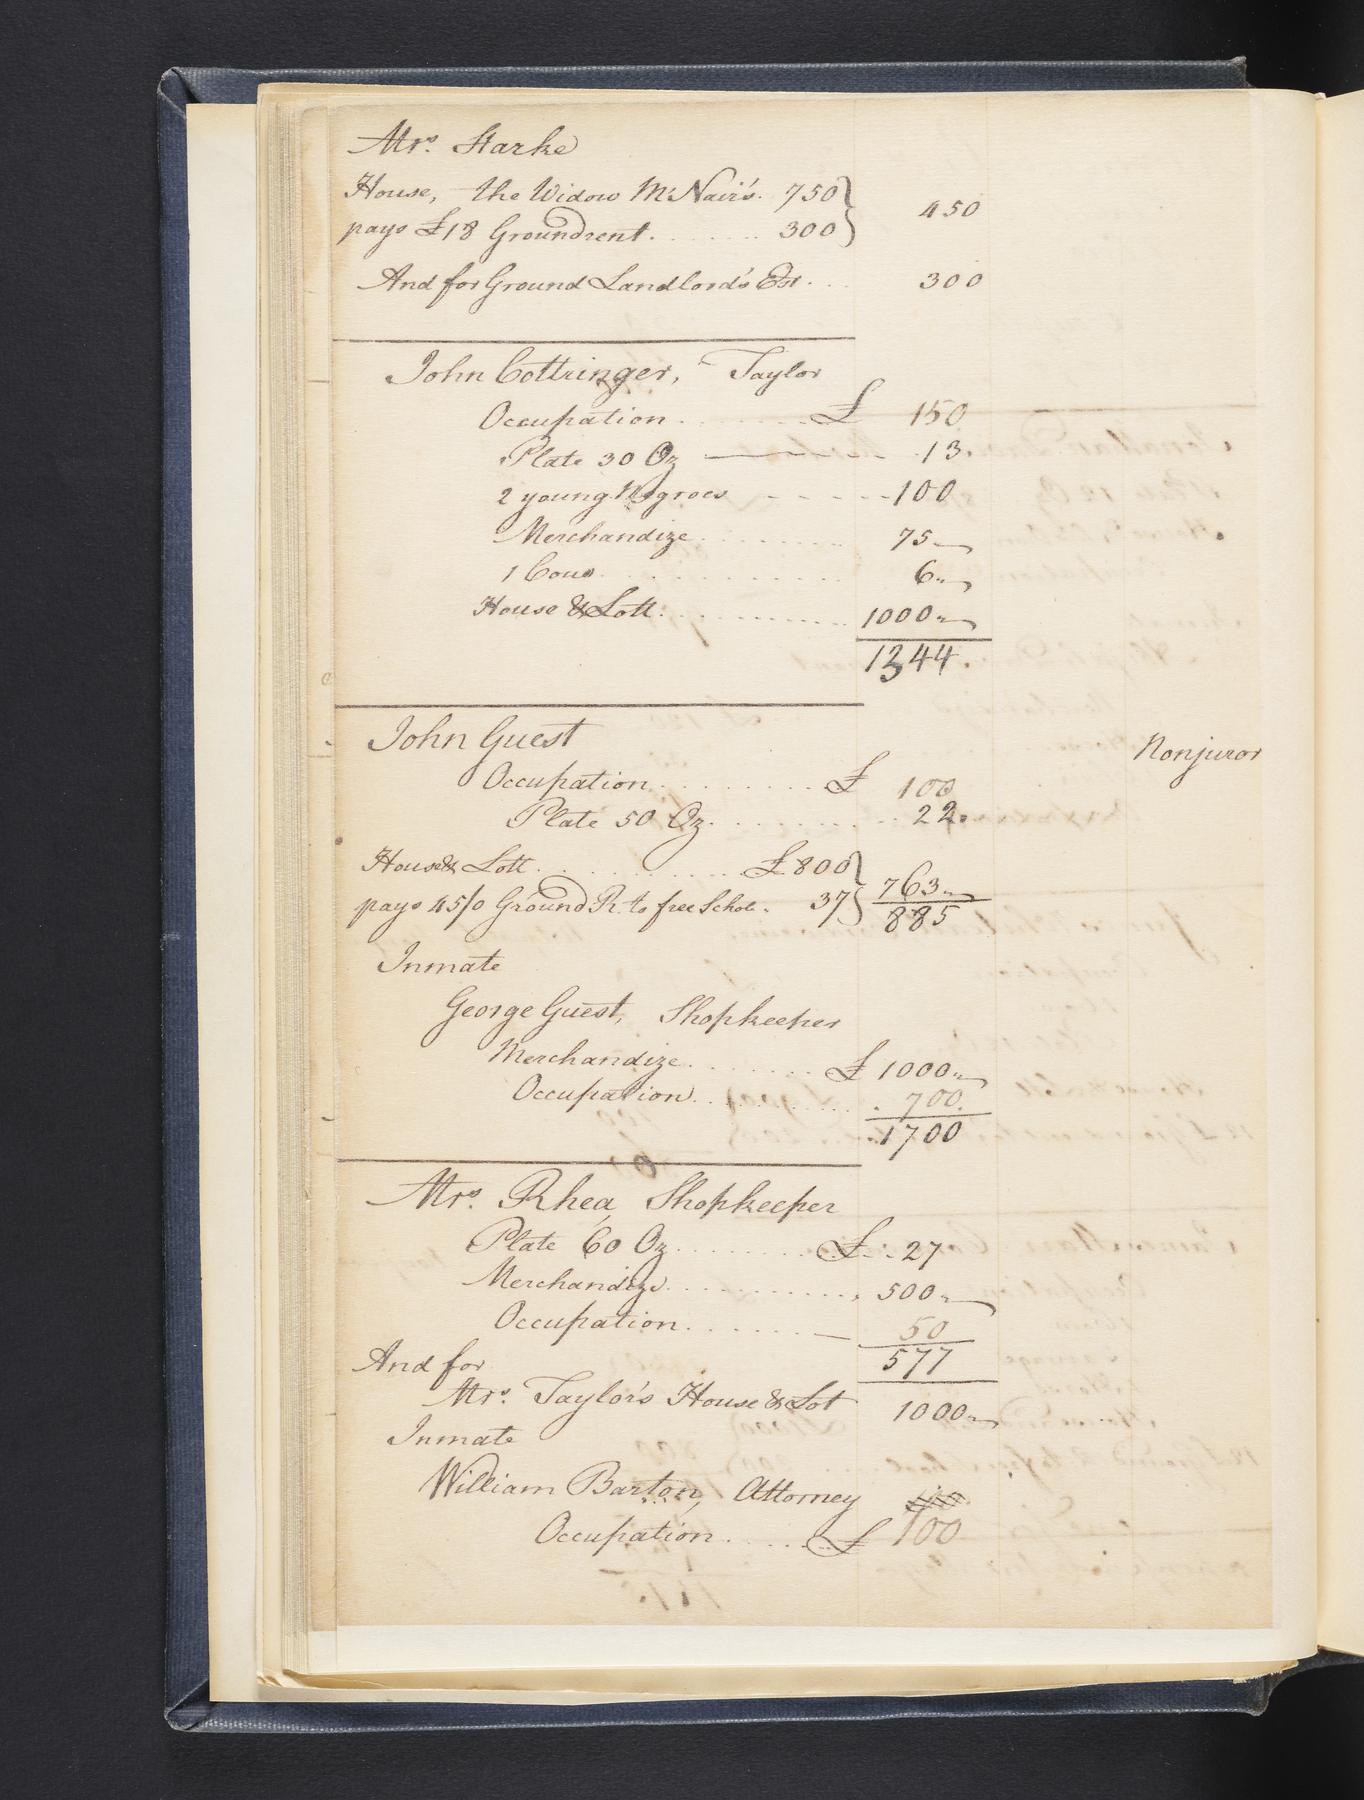 Mrs. Starke
House, the Widow McNair's. 750
450
pays £18 Groundrent. 300
And for Ground Landlord's Est. 300
John Cottringer, Taylor
Occupation £ 150
Plate 30 Oz 13.
2 young Negroes 100
Merchandize 75
1 Cow 6
House & Lott 1000
1344.
John Guest
Nonjuror
Occupation £ 100
Plate 50 Oz. 22.
House & Lott £800
pays 45/0 Ground R. to free Schol. 37 763
885
Inmate
George Guest, Shopkeeper
Merchandize £ 1000
Occupation 700.
1700
Mrs. Rhea, Shopkeeper
Plate 60 Oz £ 27
Merchandize 500
Occupation 50
577
And for
Mrs. Taylor's House & Lot 1000
Inmate
William Barton, Attorney
Occupation £ 100